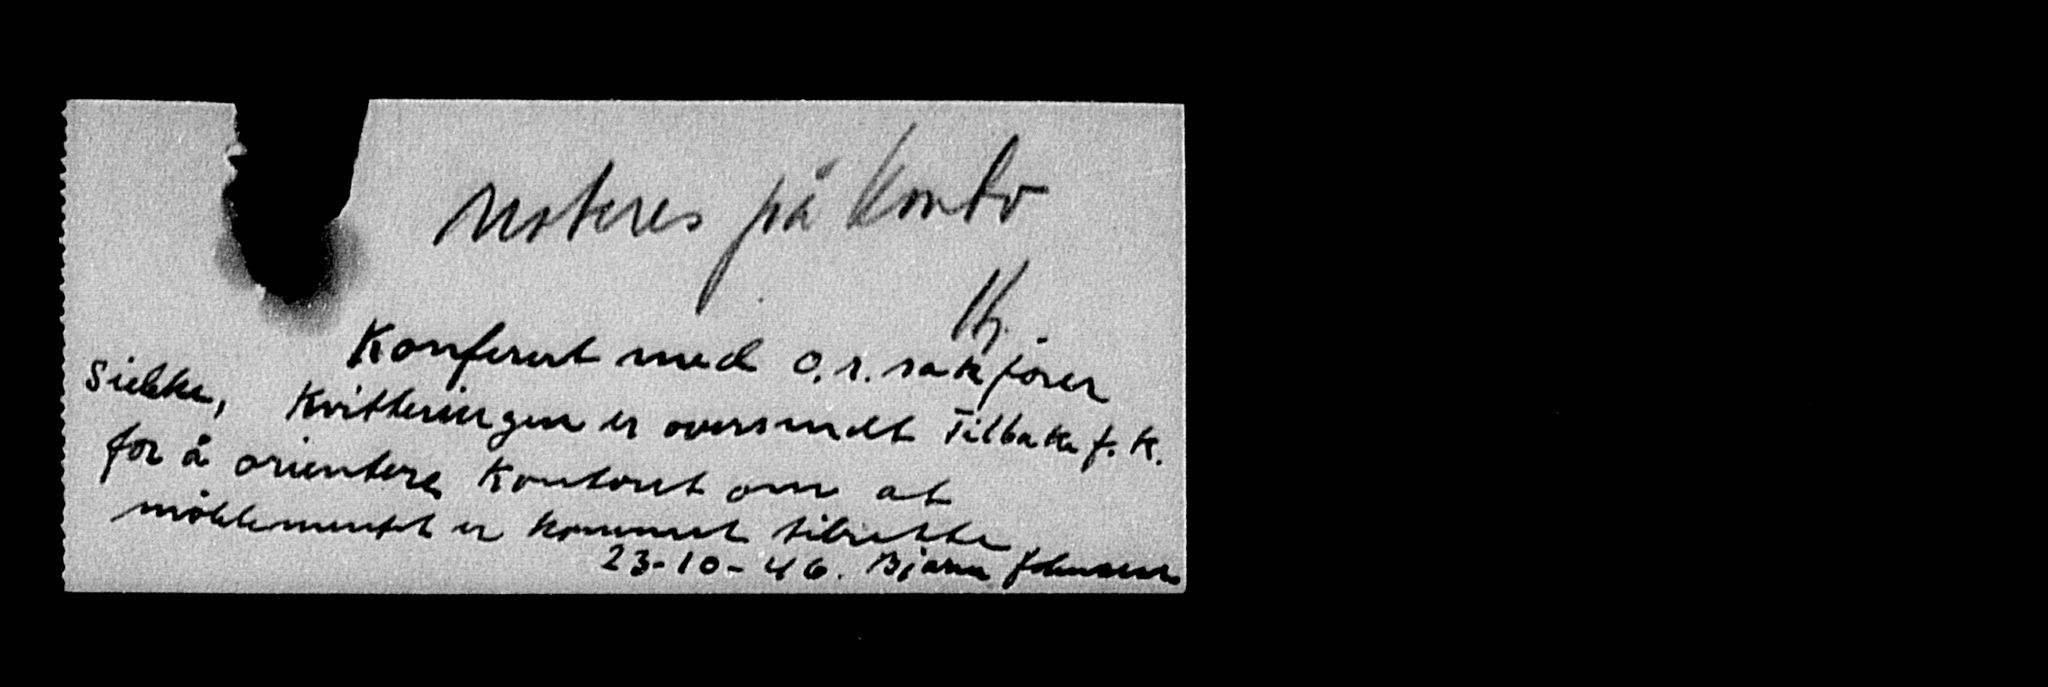 noteres på konto
Konferert med o.r. sakfører
kvitteringen er oversendt Tilbake f. k.
for å orientere kontoret om at
møblementet er kommet tilrette
23-10-46. Bjarne Johansen